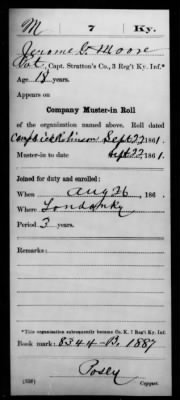 M 7 Ky.
Jerome G. Moore
Pvt., Capt. Stratton's Co., 3 Reg't Ky. Inf.*
Age 18 years.
Appears on
Company Muster-in Roll
of the organization named above. Roll dated
Camp Dick Robinson Sept 22, 1861.
Muster-in to date Sept 22, 1861.
Joined for duty and enrolled:
When Aug 26, 186 .
Where London Ky
Period 3 years.
Remarks:
*This organization subsequently became Co. K, 7 Reg't Ky. Inf.
Book mark: 8344-B-1887
Posey
(358) Copyist.